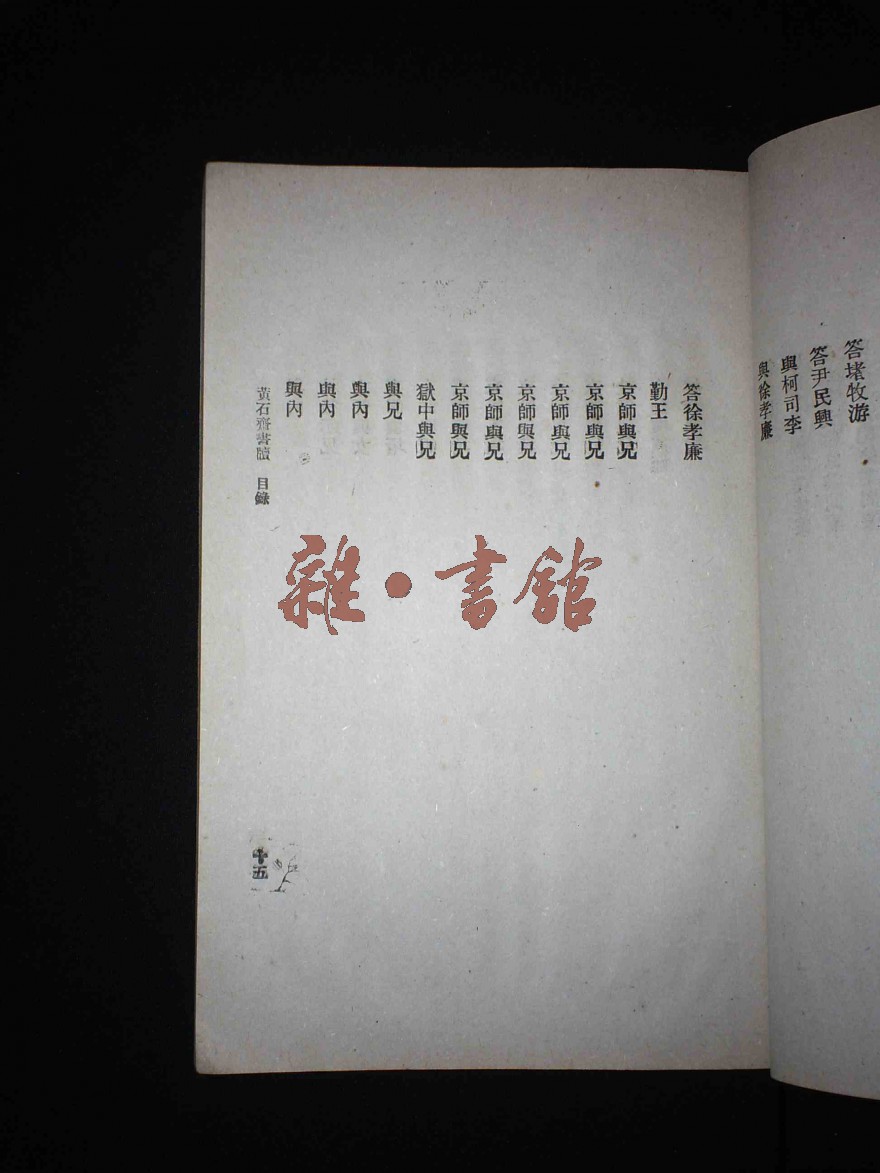 答堵牧游
答尹民興
與柯司李
與徐孝廉
答徐孝廉
勤王
京師與兄
京師與兄
京師與兄
京師與兄
京師與兄
京師與兄
獄中與兄
與兄
與內
與內
與內
黃石齋書牘 目錄
十五
雜·書館